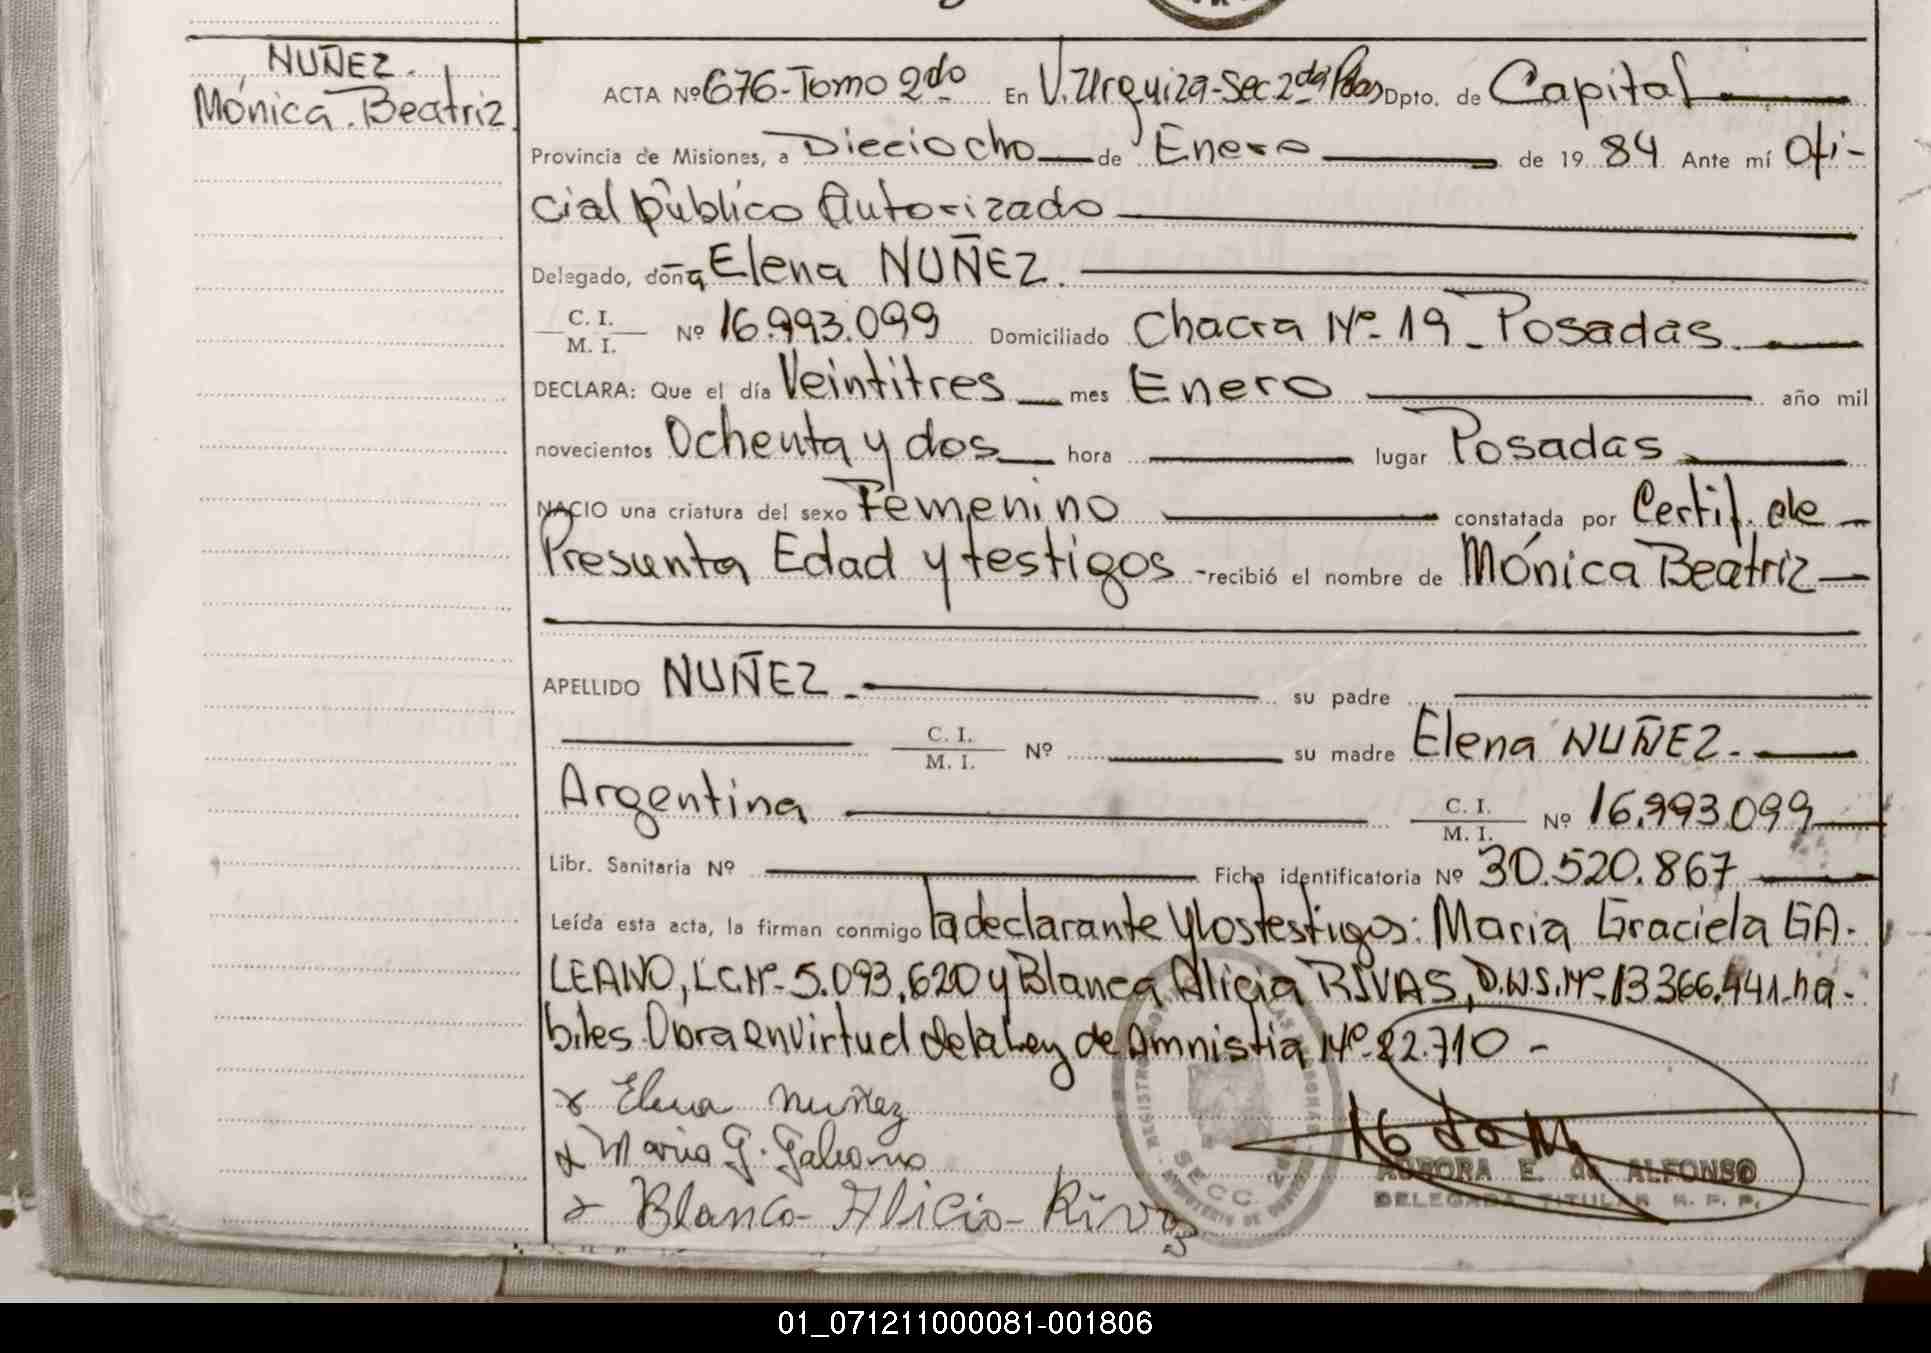 NUÑEZ.
Mónica.Beatriz.
ACTA Nº 676-Tomo 2do En V.Urquiza-Sec 2da Pdas Dpto. de Capital
Provincia de Misiones, a Dieciocho de Enero de 19 84 Ante mí Ofi-
cial público Autorizado
Delegado, doña Elena NUÑEZ.
C. I.
M. I. Nº 16.993.099 Domiciliado Chacra Nº-19-Posadas.
DECLARA: Que el día Veintitres mes Enero año mil
novecientos Ochenta y dos hora lugar Posadas
NACIO una criatura del sexo Femenino constatada por Certif. de
Presunta Edad y testigos -recibió el nombre de Mónica Beatriz
APELLIDO NUÑEZ su padre
C. I.
M. I. Nº su madre Elena NUÑEZ.
Argentina C. I.
M. I. Nº 16.993.099
Libr. Sanitaria Nº Ficha identificatoria Nº 30.520.867
Leída esta acta, la firman conmigo la declarante y los testigos: Maria Graciela GA-
LEANO, L.C.Nº-5.093.620 y Blanca Alicia RIVAS, D.N.I.Nº-13.366.441-há-
biles. Obra en virtud de la Ley de Amnistia Nº-22.710-
x Elena Nuñez
x Maria G. Galeano
x Blanca-Alicia-Rivas
SECC. 2
AURORA E. de ALFONSO
DELEGADA TITULAR R. P. P.
01_071211000081-001806